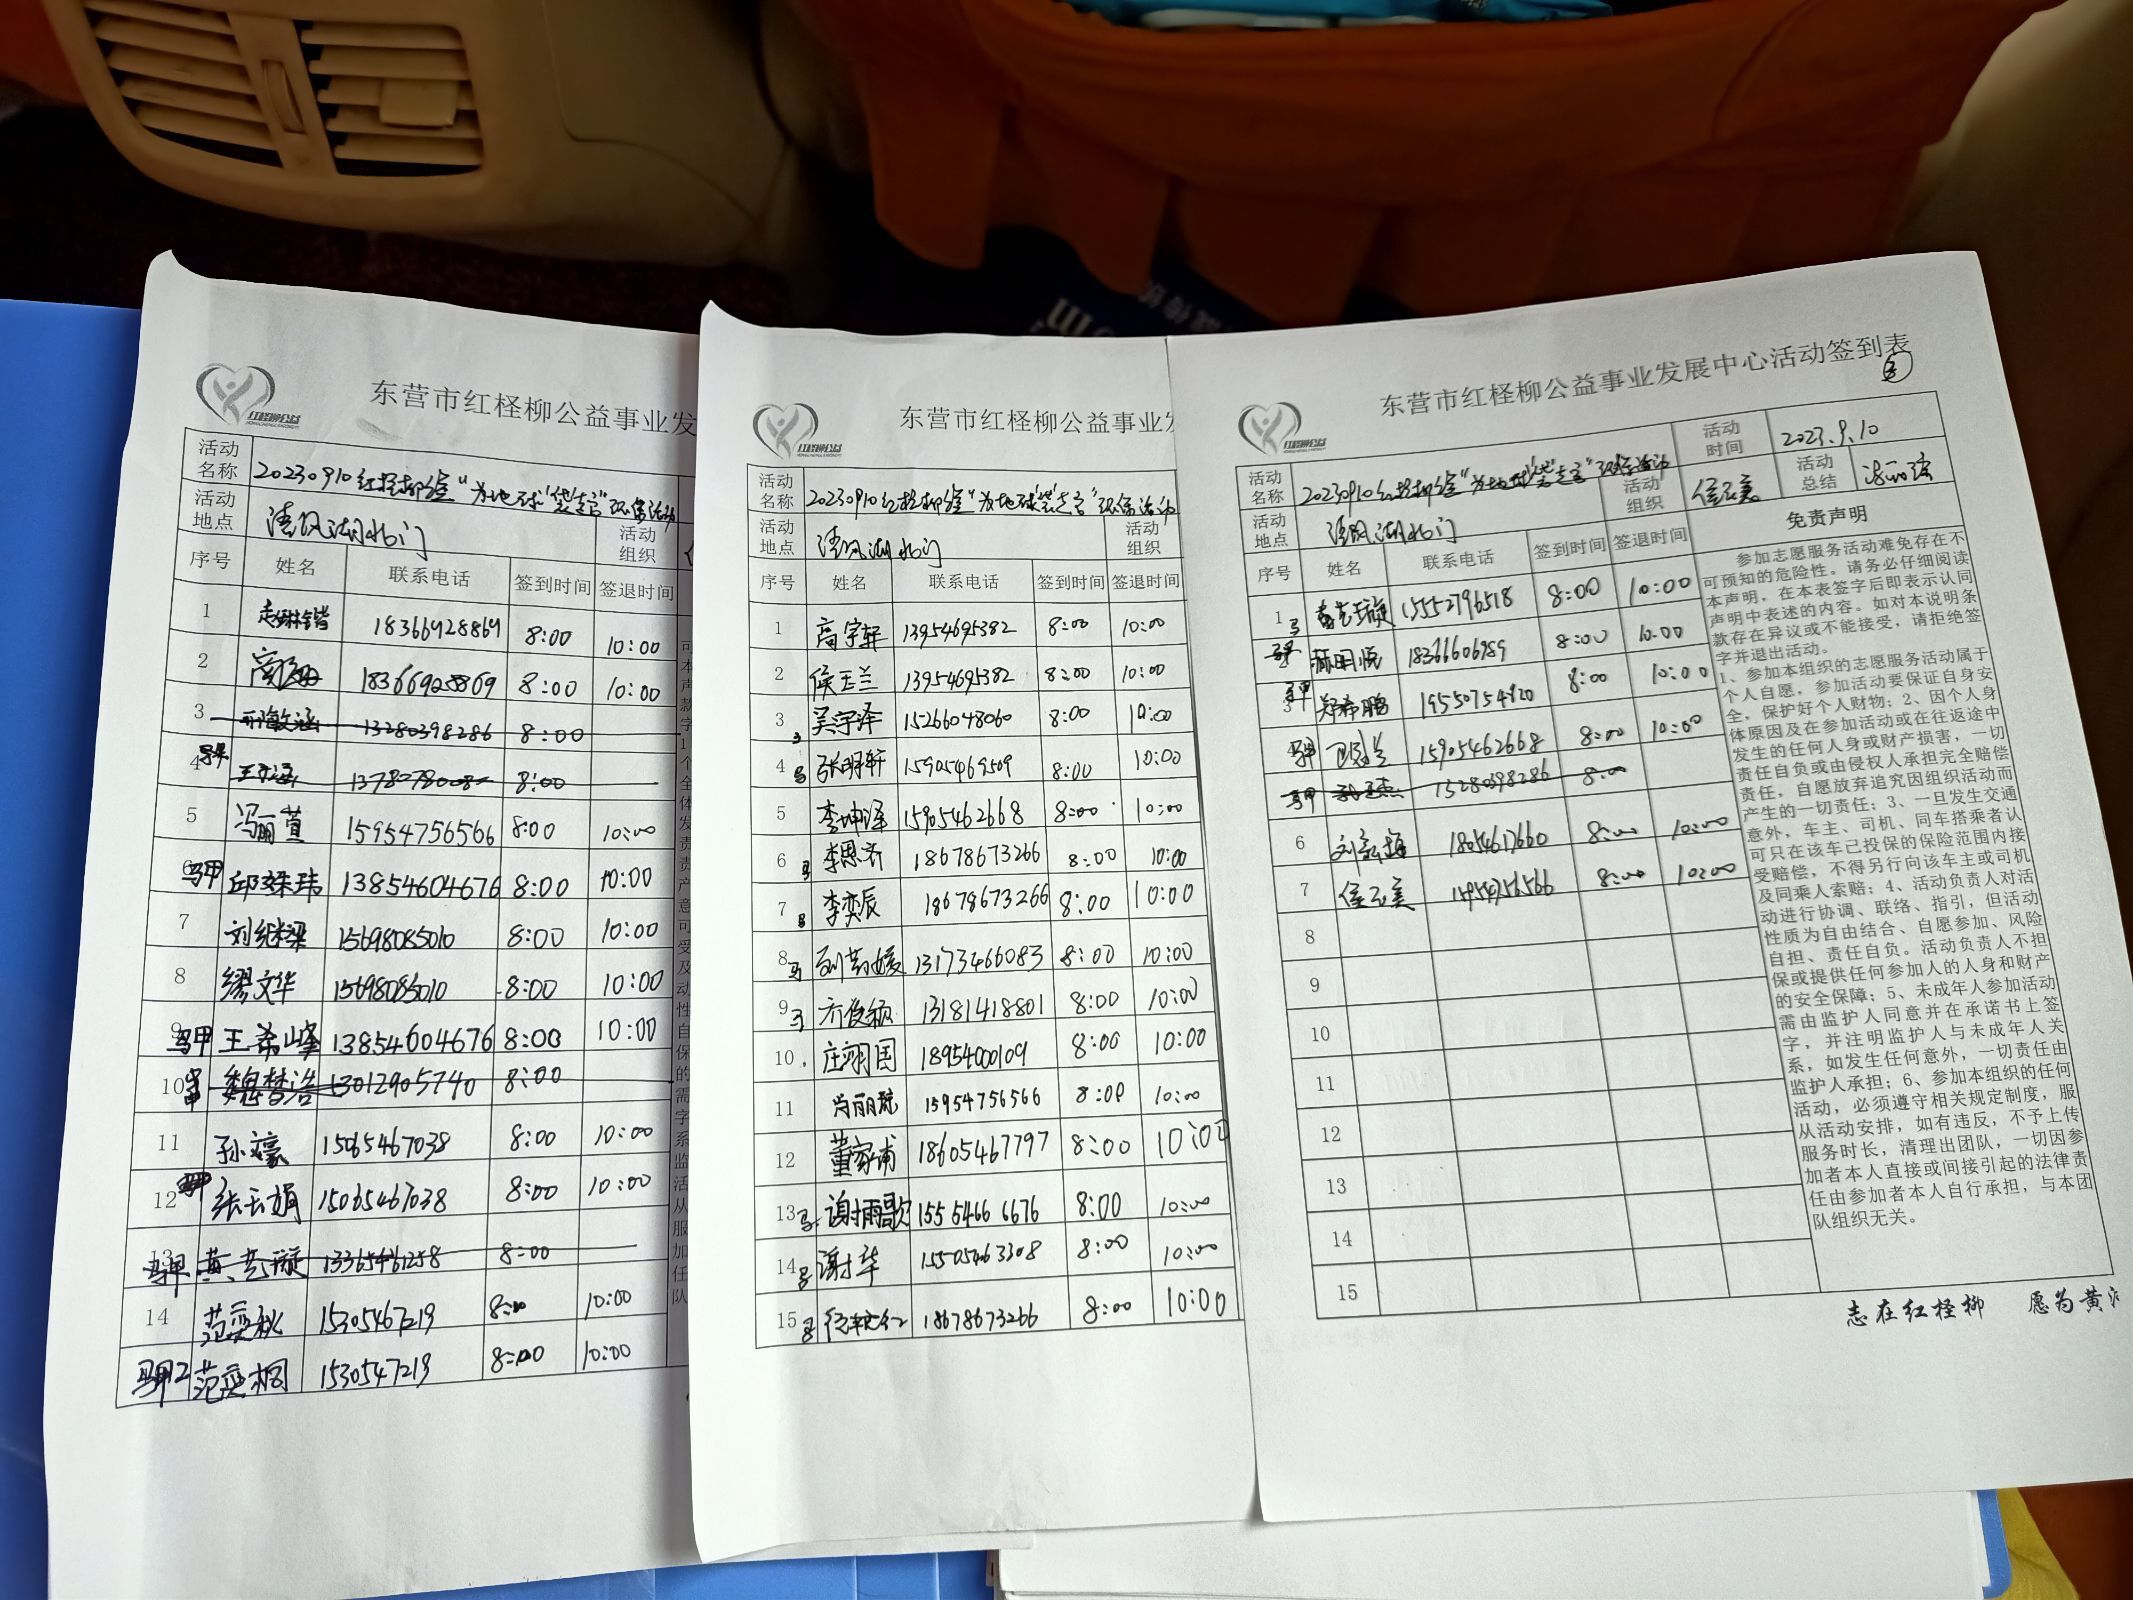 东营市红柽柳公益事业发
红柽柳公益
活动名称 20230910红柽柳
活动地点 清风湖北门 活动组织
序号 姓名 联系电话 签到时间 签退时间
1 18366928869 8:00 10:00
2 18366928869 8:00 10:00
3 13280398286 8:00
4 8:00
5 冯丽萱 15954756566 8:00 10:00
马甲 邱姝玮 13854604676 8:00 10:00
7 刘继梁 15698085010 8:00 10:00
8 缪文华 15698085010 8:00 10:00
马甲 王希峰 13854604676 8:00 10:00
10 魏梦浩 13012905740 8:00
11 孙 15065467038 8:00 10:00
12 马甲 15065467038 8:00 10:00
13 马甲 黄艺璇 13365461258 8:00
14 范奕秋 15305467219 8:00 10:00
马甲2 范奕桐 1530547219 8:00 10:00
东营市红柽柳公益事业发
红柽柳公益
活动名称 20230910红柽柳
活动地点 清风湖北门 活动组织
序号 姓名 联系电话 签到时间 签退时间
1 高宇轩 13954695382 8:00 10:00
2 侯玉兰 13954695382 8:00 10:00
3 吴宇泽 15266048060 8:00 10:00
4 张明轩 15905469509 8:00 10:00
5 李坤泽 15905462668 8:00 10:00
6 李思齐 18678673266 8:00 10:00
7 李奕辰 18678673266 8:00 10:00
8 马 13173466083 8:00 10:00
9 马 13181418801 8:00 10:00
10 庄翊国 18954000109 8:00 10:00
11 15954756566 8:00 10:00
12 董家甫 18605467797 8:00 10:00
13 马 谢雨歌 15554666676 8:00 10:00
14 谢华 15505463308 8:00 10:00
15 18678673266 8:00 10:00
东营市红柽柳公益事业发展中心活动签到表
③
红柽柳公益
活动名称 20230910红柽柳 活动时间 2023.9.10
活动地点 清风湖北门 活动组织 侯玉美 活动总结
序号 姓名 联系电话 签到时间 签退时间 免责声明
1 马 15552796518 8:00 10:00
2 郝明悦 18366606989 8:00 10:00
3 马甲 郑希鹏 8:00 10:00
马甲 15905462668 8:00 10:00
马甲 13280398286 8:00
6 18054617660 8:00 10:00
7 侯玉美 15954756566 8:00 10:00
8
9
10
11
12
13
14
15
参加志愿服务活动难免存在不
可预知的危险性。请务必仔细阅读
本声明，在本表签字后即表示认同
声明中表述的内容。如对本说明条
款存在异议或不能接受，请拒绝签
字并退出活动。
1、参加本组织的志愿服务活动属于
个人自愿，参加活动要保证自身安
全，保护好个人财物；2、因个人身
体原因及在参加活动或在往返途中
发生的任何人身或财产损害，一切
责任自负或由侵权人承担完全赔偿
责任，自愿放弃追究因组织活动而
产生的一切责任；3、一旦发生交通
意外，车主、司机、同车搭乘者认
可只在该车已投保的保险范围内接
受赔偿，不得另行向该车主或司机
及同乘人索赔；4、活动负责人对活
动进行协调、联络、指引，但活动
性质为自由结合、自愿参加、风险
自担、责任自负。活动负责人不担
保或提供任何参加人的人身和财产
的安全保障；5、未成年人参加活动
需由监护人同意并在承诺书上签
字，并注明监护人与未成年人关
系，如发生任何意外，一切责任由
监护人承担；6、参加本组织的任何
活动，必须遵守相关规定制度，服
从活动安排，如有违反，不予上传
服务时长，清理出团队，一切因参
加者本人直接或间接引起的法律责
任由参加者本人自行承担，与本团
队组织无关。
志在红柽柳 愿为黄